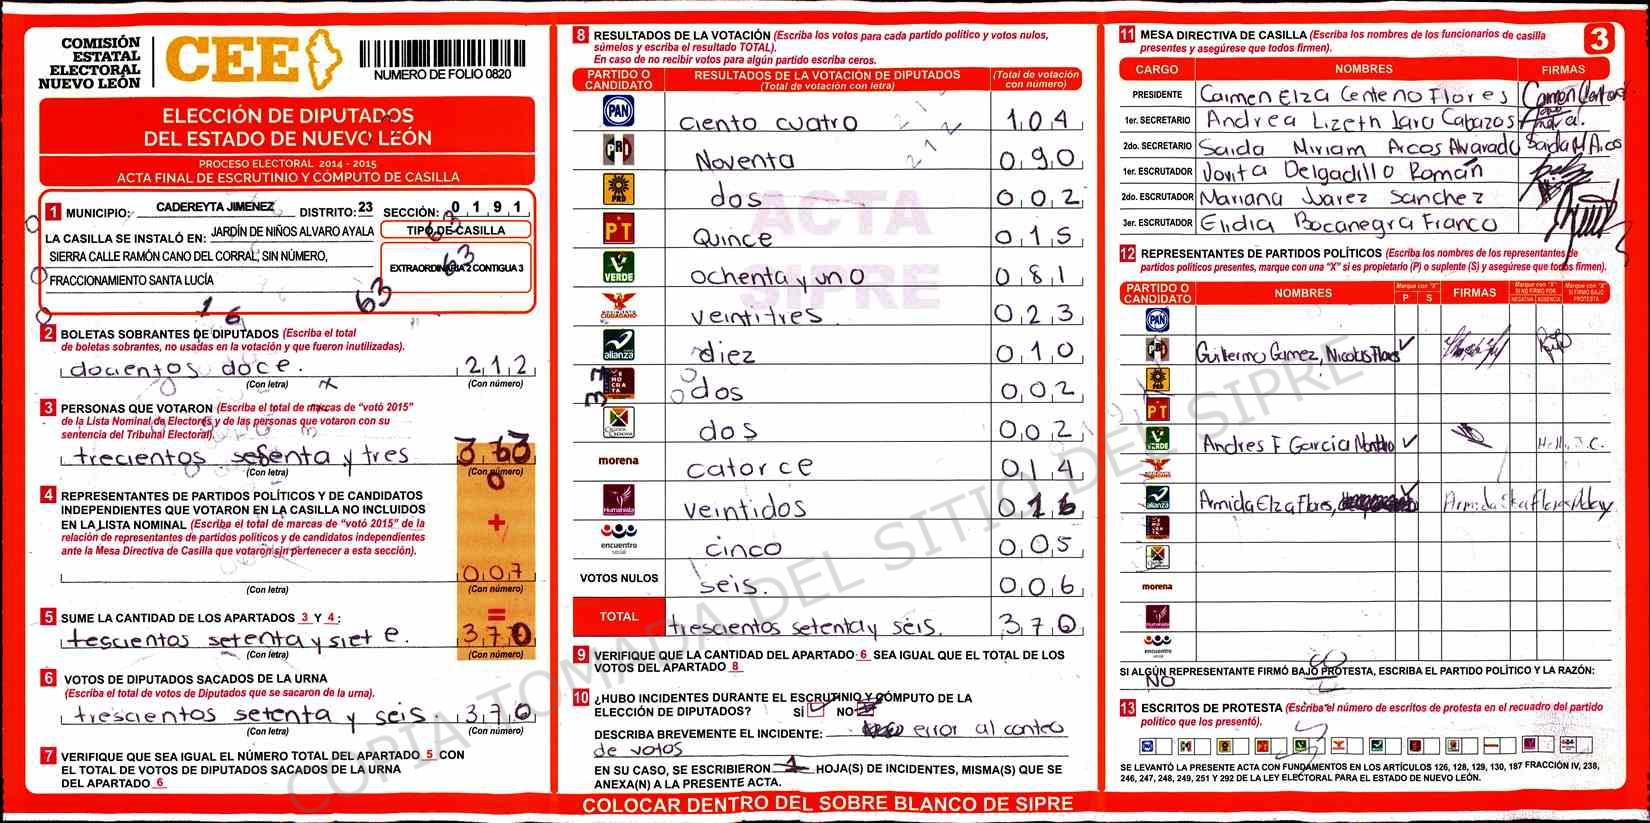 COMISIÓN
ESTATAL
ELECTORAL
NUEVO LEÓN
CEE
NUMERO DE FOLIO 0820
ELECCIÓN DE DIPUTADOS
DEL ESTADO DE NUEVO LEÓN
PROCESO ELECTORAL 2014 - 2015
ACTA FINAL DE ESCRUTINIO Y CÓMPUTO DE CASILLA
1 MUNICIPIO: CADEREYTA JIMENEZ DISTRITO: 23 SECCIÓN: 0 1 9 1
LA CASILLA SE INSTALÓ EN: JARDÍN DE NIÑOS ALVARO AYALA
TIPO DE CASILLA
SIERRA CALLE RAMÓN CANO DEL CORRAL, SIN NÚMERO,
EXTRAORDINARIA 2 CONTIGUA 3
FRACCIONAMIENTO SANTA LUCÍA
63
63
63
16
2 BOLETAS SOBRANTES DE DIPUTADOS (Escriba el total
de boletas sobrantes, no usadas en la votación y que fueron inutilizadas).
docientos doce. 2 1 2
(Con letra) (Con número)
3 PERSONAS QUE VOTARON (Escriba el total de marcas de "votó 2015"
de la Lista Nominal de Electores y de las personas que votaron con su
sentencia del Tribunal Electoral).
trecientos sesenta y tres 3 63
(Con letra) (Con número)
4 REPRESENTANTES DE PARTIDOS POLÍTICOS Y DE CANDIDATOS
INDEPENDIENTES QUE VOTARON EN LA CASILLA NO INCLUIDOS
EN LA LISTA NOMINAL (Escriba el total de marcas de "votó 2015" de la
relación de representantes de partidos políticos y de candidatos independientes
ante la Mesa Directiva de Casilla que votaron sin pertenecer a esta sección).
+
0 0 7
(Con letra) (Con número)
=
5 SUME LA CANTIDAD DE LOS APARTADOS 3 Y 4:
tescientos setenta y siete. 3 7 0
(Con letra) (Con número)
6 VOTOS DE DIPUTADOS SACADOS DE LA URNA
(Escriba el total de votos de Diputados que se sacaron de la urna).
trescientos setenta y seis 3 7 0
(Con letra) (Con número)
7 VERIFIQUE QUE SEA IGUAL EL NÚMERO TOTAL DEL APARTADO 5 CON
EL TOTAL DE VOTOS DE DIPUTADOS SACADOS DE LA URNA
DEL APARTADO 6
8 RESULTADOS DE LA VOTACIÓN (Escriba los votos para cada partido político y votos nulos,
súmelos y escriba el resultado TOTAL).
En caso de no recibir votos para algún partido escriba ceros.
PARTIDO O CANDIDATO RESULTADOS DE LA VOTACIÓN DE DIPUTADOS (Total de votación con letra) (Total de votación con número)
PAN ciento cuatro 1 0 4
PRI Noventa 0 9 0
PRD dos 0 0 2
PT Quince 0 1 5
VERDE ochenta y uno 0 8 1
MOVIMIENTO CIUDADANO veintitres 0 2 3
alianza diez 0 1 0
37 DEMOCRATA dos 0 0 2
dos 0 0 2
morena catorce 0 1 4
Humanista veintidos 0 1 6
encuentro social cinco 0 0 5
VOTOS NULOS seis. 0 0 6
TOTAL trescientos setenta y seis. 3 7 0
ACTA
SIPRE
9 VERIFIQUE QUE LA CANTIDAD DEL APARTADO 6 SEA IGUAL QUE EL TOTAL DE LOS
VOTOS DEL APARTADO 8
10 ¿HUBO INCIDENTES DURANTE EL ESCRUTINIO Y CÓMPUTO DE LA
ELECCIÓN DE DIPUTADOS? SÍ NO
DESCRIBA BREVEMENTE EL INCIDENTE: error al conteo
de votos
EN SU CASO, SE ESCRIBIERON 1 HOJA(S) DE INCIDENTES, MISMA(S) QUE SE
ANEXA(N) A LA PRESENTE ACTA.
COLOCAR DENTRO DEL SOBRE BLANCO DE SIPRE
11 MESA DIRECTIVA DE CASILLA (Escriba los nombres de los funcionarios de casilla
presentes y asegúrese que todos firmen).
3
CARGO NOMBRES FIRMAS
PRESIDENTE Carmen Elza Centeno Flores
1er. SECRETARIO Andrea Lizeth Jara Cabazos
2do. SECRETARIO Saida Miriam Arcos Alvarado Saida M Arcos
1er. ESCRUTADOR Jovita Delgadillo Román
2do. ESCRUTADOR Mariana Juarez Sanchez
3er. ESCRUTADOR Elidia Bocanegra Franco
12 REPRESENTANTES DE PARTIDOS POLÍTICOS (Escriba los nombres de los representantes de
partidos políticos presentes, marque con una "X" si es propietario (P) o suplente (S) y asegúrese que todos firmen).
PARTIDO O CANDIDATO NOMBRES Marque con "X" P S FIRMAS Marque con "X" SI NO FIRMÓ POR NEGATIVA AUSENCIA Marque con "X" SI FIRMÓ BAJO PROTESTA
PAN
PRI Guillermo Gamez, Nicolas Flores
PRD
PT
VERDE Andres F Garcia
alianza Armida Elza Flores,
morena
Humanista
encuentro social
SI ALGÚN REPRESENTANTE FIRMÓ BAJO PROTESTA, ESCRIBA EL PARTIDO POLÍTICO Y LA RAZÓN:
NO
13 ESCRITOS DE PROTESTA (Escriba el número de escritos de protesta en el recuadro del partido
político que los presentó).
SE LEVANTÓ LA PRESENTE ACTA CON FUNDAMENTOS EN LOS ARTÍCULOS 126, 128, 129, 130, 187 FRACCIÓN IV, 238,
246, 247, 248, 249, 251 Y 292 DE LA LEY ELECTORAL PARA EL ESTADO DE NUEVO LEÓN.
COPIA TOMADA DEL SITIO DEL SIPRE